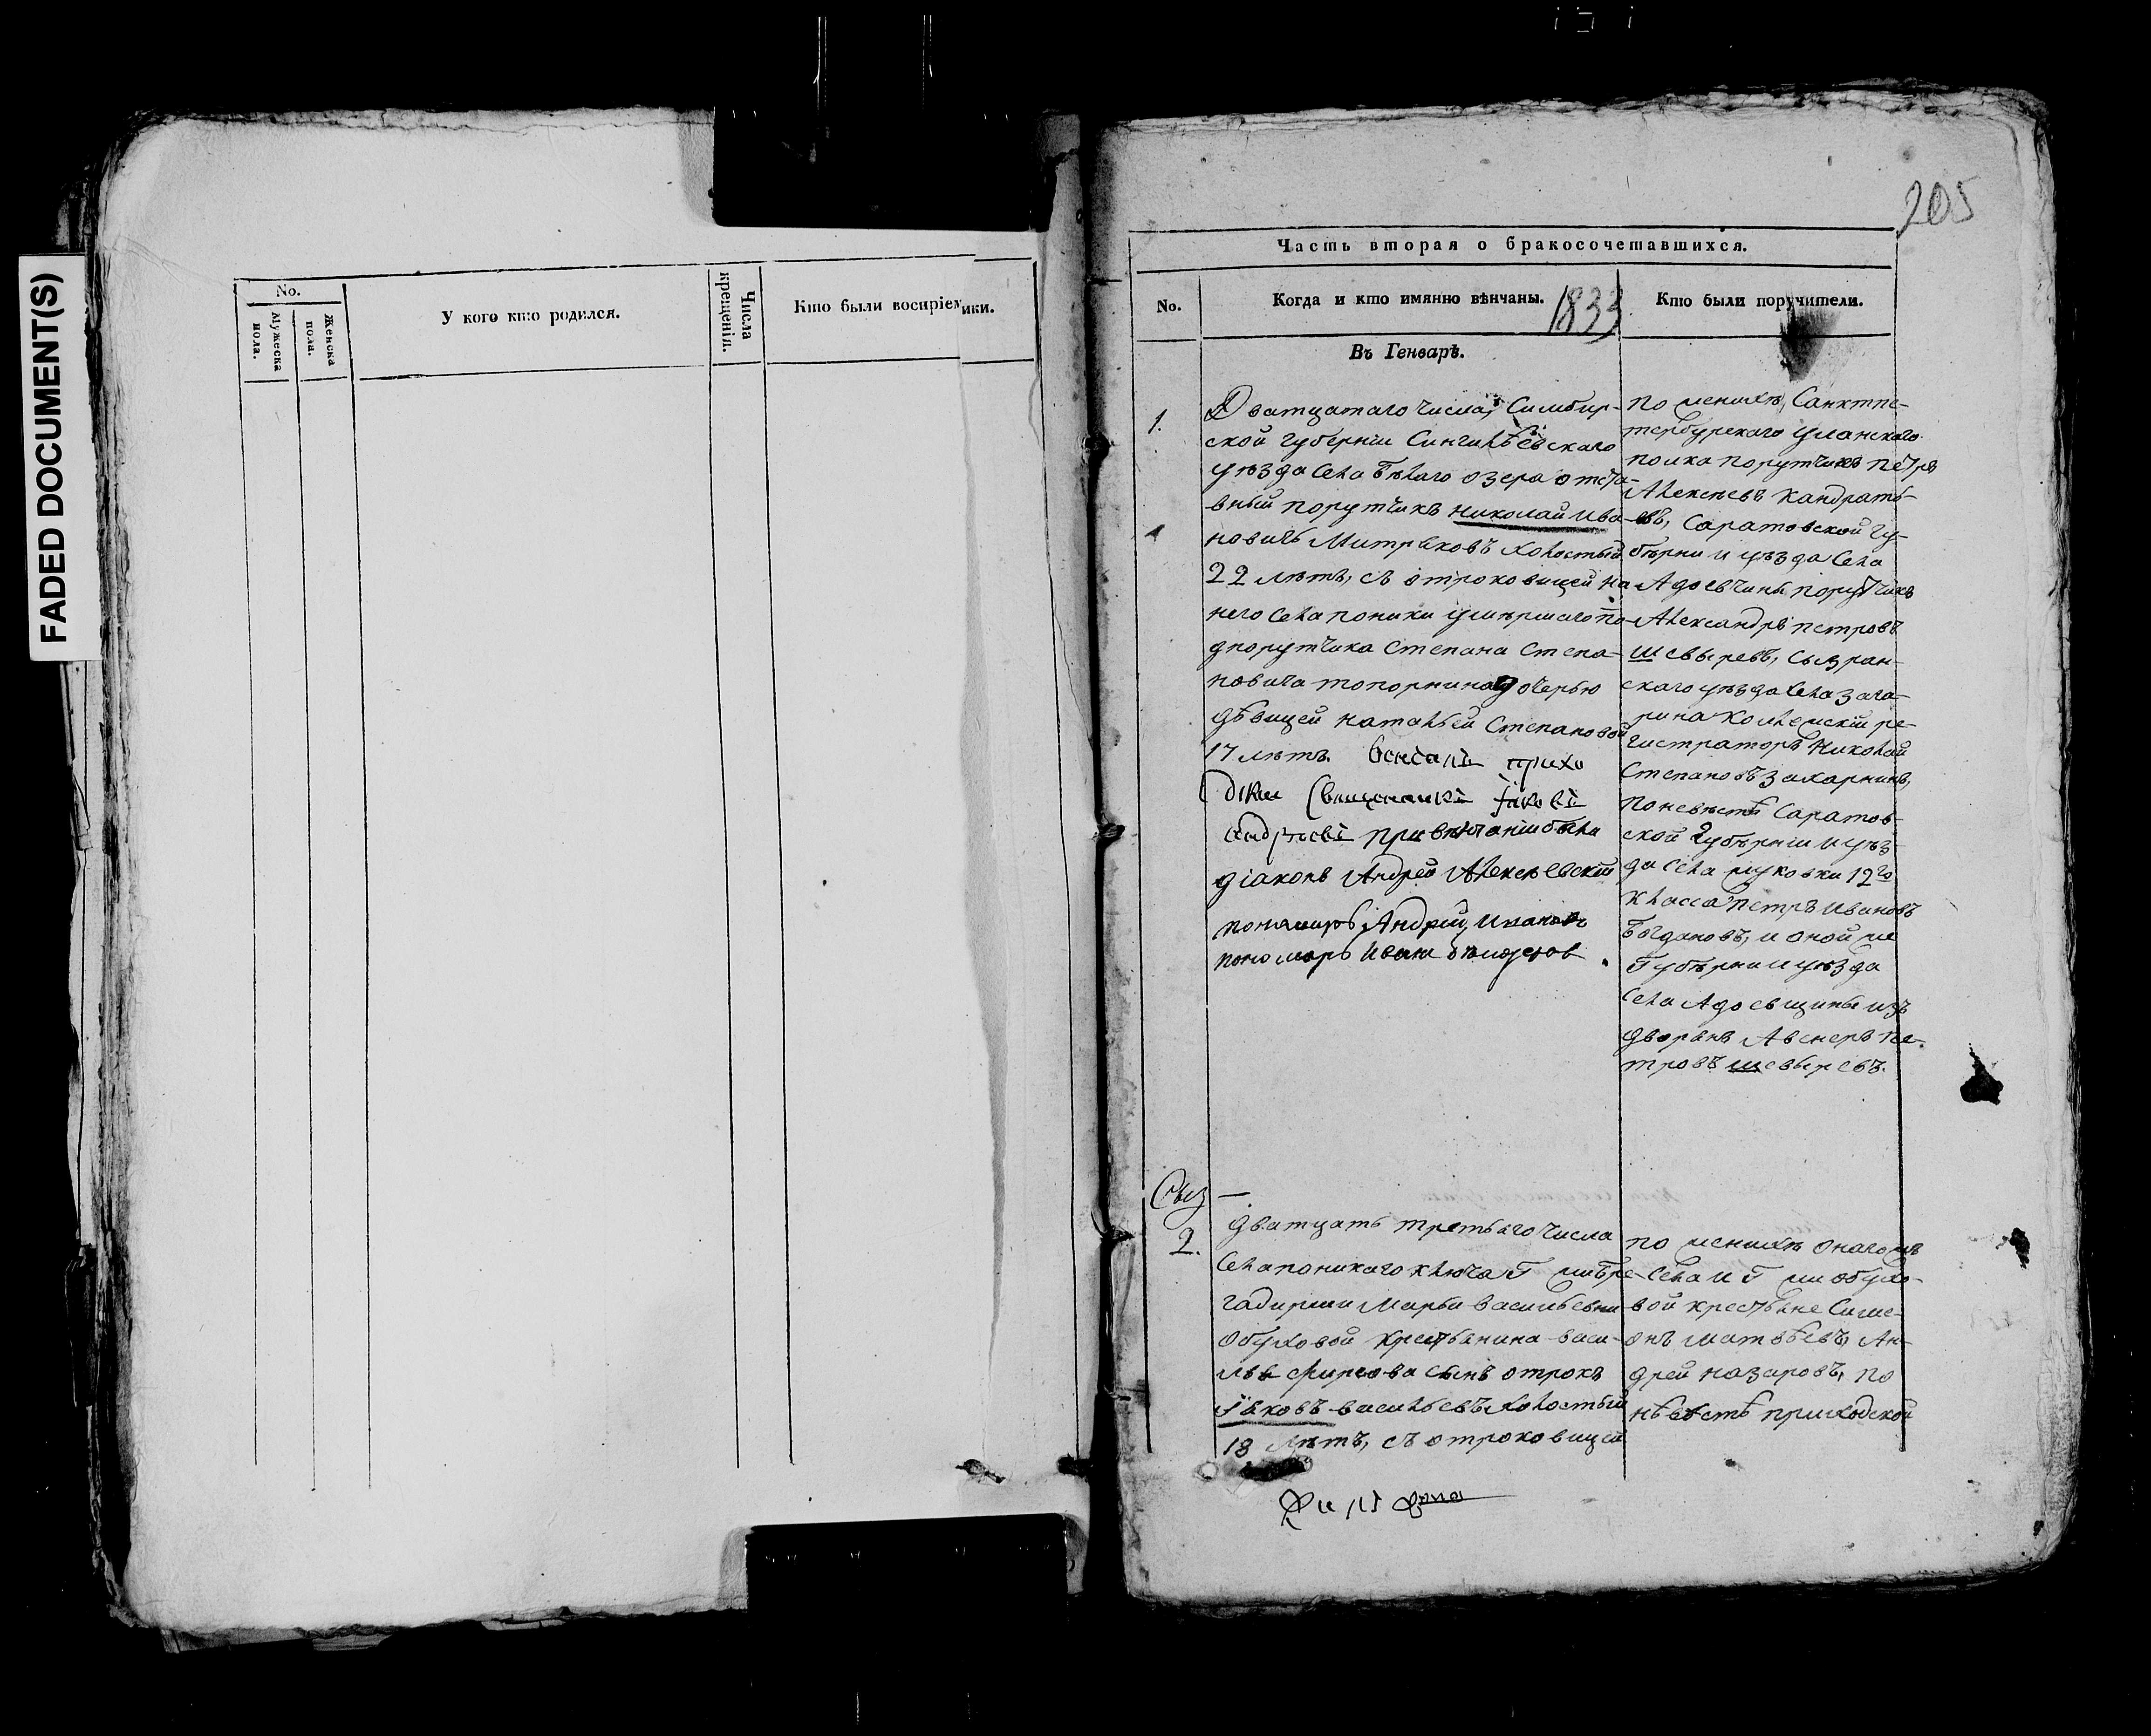 FADED DOCUMENT(S)
No.
Мужеска пола.
Женска пола.
У кого кто родился.
Числа крещенія.
Кто были воспріем ики.
205
Часть вторая о бракосочетавшихся.
No.
Когда и кто имянно вѣнчаны.
1833
Кто были поручители.
Въ Генварѣ.
1.
Дватцатаго числа, Симбир-
ской губерніи Сингилѣевскаго
уѣзда села Бѣлаго озера отста-
вный порутчикъ Николай Ива-
новичь Митрѣковъ холостый
22 лѣтъ, съ отроковицей
него села поники умѣршаго по-
дпорутчика Степана Степа-
новича топорнина дочерью
дѣвицей натальей Степановой
17 лѣтъ. Венчалъ прихо
Священникъ Іаковъ
Андреевъ при вѣнчаніи были
діаконъ Андрей Алексѣевскій
понамарь Андрей Иванов
пономарь Иван
по женихѣ, Санктпе-
тербурскаго уланскаго
полка порутчикъ петръ
Алексѣевъ Кандрать-
евъ, Саратовской гу-
бѣрни и уѣзда села
Адоевчины порутчикъ
Александръ петровъ
шевыревъ, сызран-
скаго уѣзда села зага-
рина колѣжскій ре-
гистраторъ Николай
Степановъ захарьинъ,
по невѣстѣ Саратов-
ской губѣрніи и уѣз-
да села жуковки 12го
класса петръ Ивановъ
Богдановъ, и оной же
Губѣрни и уѣзда
села Адоевщины изъ
дворянъ Авенеръ пе-
тровъ шевыревъ.
Сыз
2.
дватцать третьяго числа
села поникаго ключа Г жи бре-
гадирши Марьи васильевны
Обуховой крестьянина васи-
лья фирсова сынъ отрокъ
Іаковъ васильевъ холостый
18 лѣтъ, съ отроковицей
по женихѣ онаго жъ
села и Г жи обухо-
вой крестьяне Симе-
онъ матвѣевъ, Ан-
дрей назаровъ, по
нѣвѣстѣ приходской